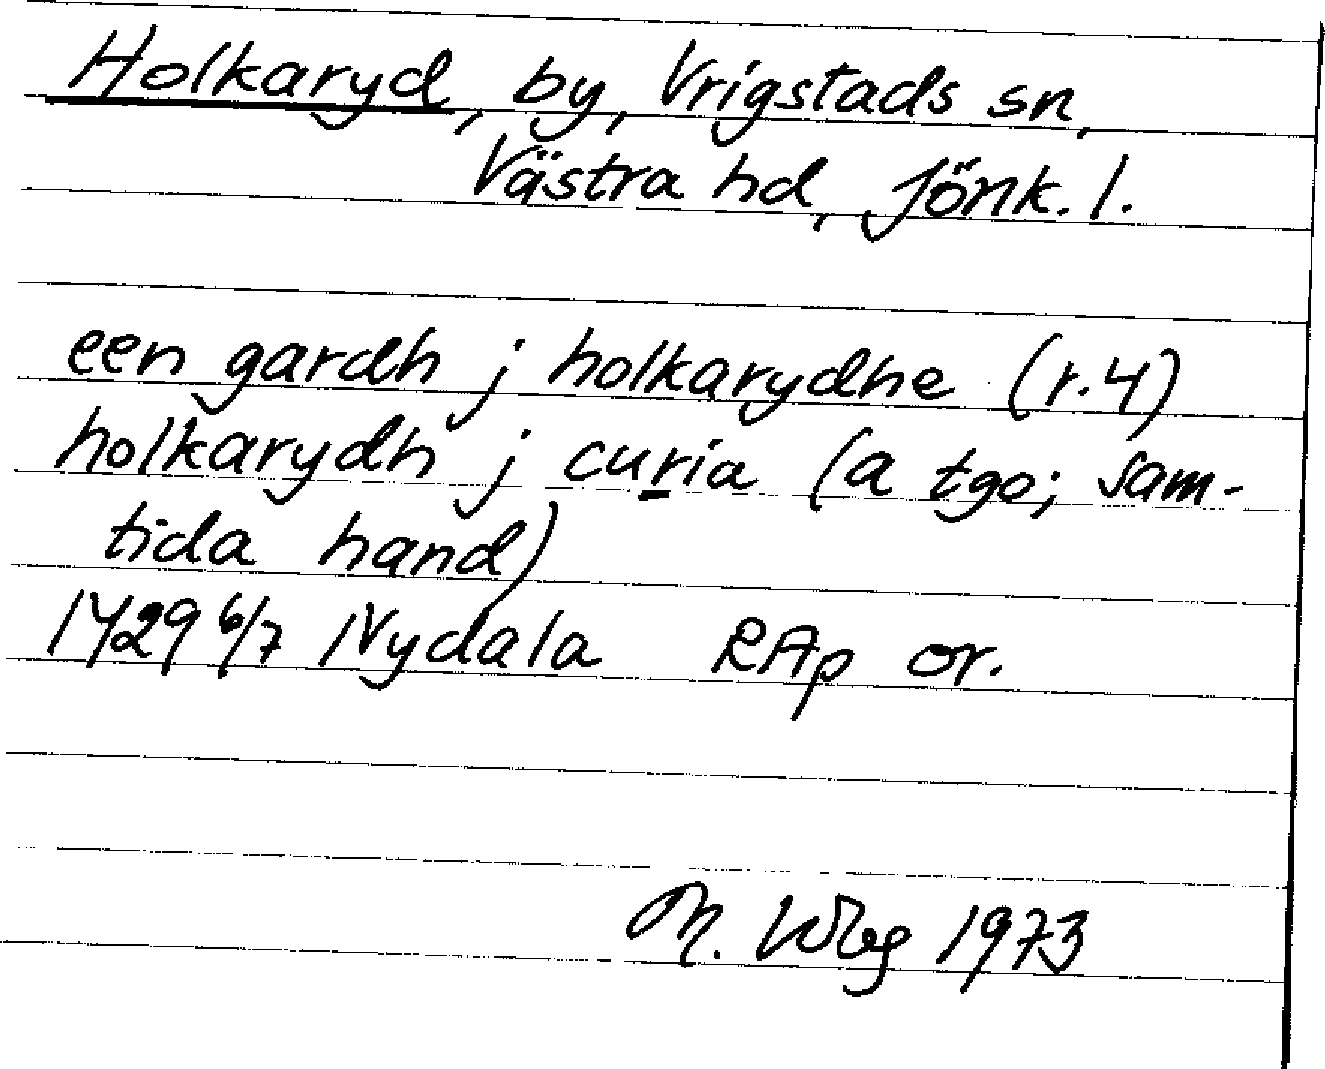 Holkaryd, by, Vrigstads sn,
Västra hd, Jönk. l.
een gardh j holkarydhe (r.4)
holkarydh j curia (a tgo; sam-
tida hand)
1429 6/7 Nydala RAp or.
M. Wbg 1973